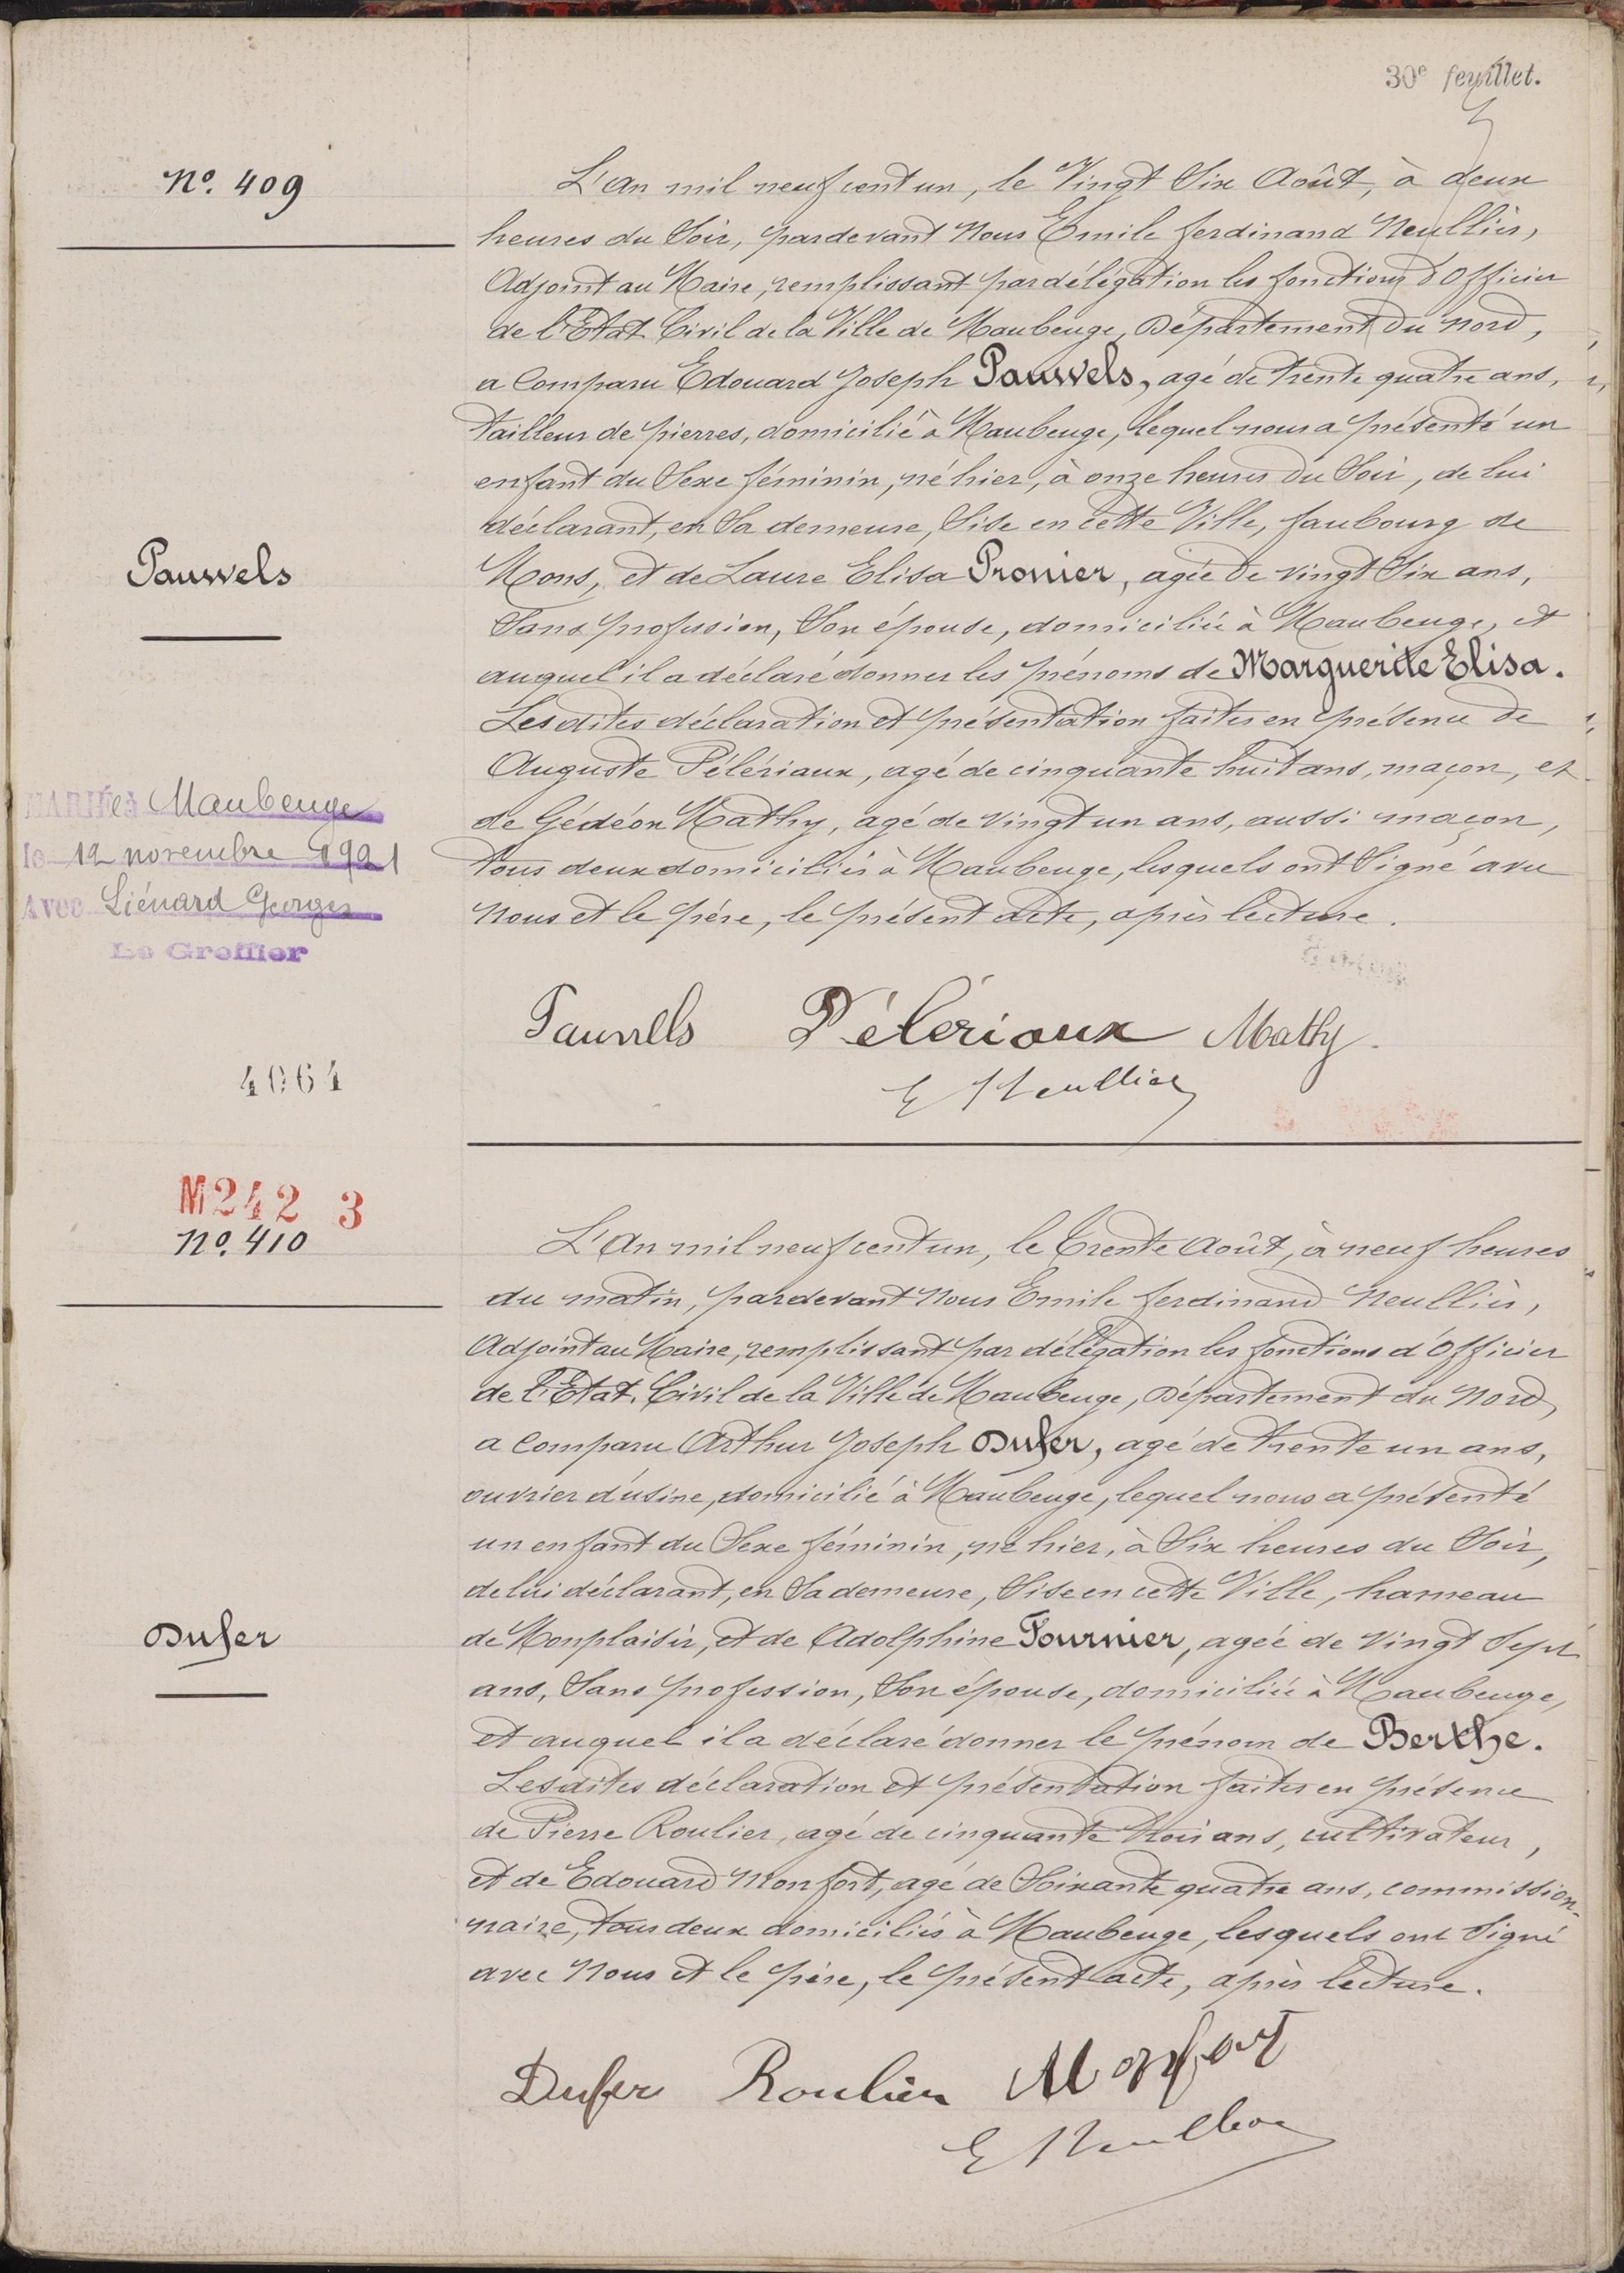 30e feuillet.
No. 409
L'An mil neuf cent un, le Vingt Six Août, à deux
heures du Soir, pardevant Nous Emile Ferdinand Neulliès,
Adjoint au Maire, remplissant par délégation les fonctions d'Officier
de l'Etat Civil de la Ville de Maubeuge, Département du Nord,
a comparu Edouard Joseph Pauwels, agé de trente quatre ans,
tailleur de pierres, domicilié à Maubeuge, lequel nous a présenté un
enfant du Sexe féminin, né hier, à onze heures du Soir, de lui
déclarant, en Sa demeure, Sise en cette Ville, faubourg de
Pauwels
Mons, et de Laure Elisa Pronier, agée de vingt Six ans,
Sans profession, Son épouse, domiciliée à Maubeuge, et
auquel il a déclaré donner les prénoms de Marguerite Elisa.
Lesdites déclaration et présentation faites en présence de
Auguste Pélériaux, agé de cinquante huit ans, maçon, et
de Gédéon Mathy, agé de vingt un ans, aussi maçon,
tous deux domiciliés à Maubeuge, lesquels ont Signé avec
Nous et le père, le présent acte, après lecture.
MARIÉE à Maubeuge
le 12 novembre 1921
Avec Liénard Georges
Le Greffier
Pauwels Pélériaux Mathy
E Neulliès
4064
M242 3
No. 410
L'An mil neuf cent un, le Trente Août, à neuf heures
du matin, pardevant Nous Emile Ferdinand Neulliès,
Adjoint au Maire, remplissant par délégation les fonctions d'Officier
de l'Etat Civil de la Ville de Maubeuge, Département du Nord,
a comparu Arthur Joseph Dufer, agé de trente un ans,
ouvrier d'usine, domicilié à Maubeuge, lequel nous a présenté
un enfant du Sexe féminin, né hier, à Six heures du Soir,
de lui déclarant, en Sa demeure, Sise en cette Ville, hameau
Dufer
de Monplaisir, et de Adolphine Fournier, agée de vingt Sept
ans, Sans profession, Son épouse, domiciliée à Maubeuge,
et auquel il a déclaré donner le prénom de Berthe.
Lesdites déclaration et présentation faites en présence
de Pierre Roulier, agé de cinquante trois ans, cultivateur,
et de Edouard Monfort, agé de Soixante quatre ans, commission-
naire, tous deux domiciliés à Maubeuge, lesquels ont Signé
avec Nous et le père, le présent acte, après lecture.
Dufer Roulier Monfort
E Neulliès